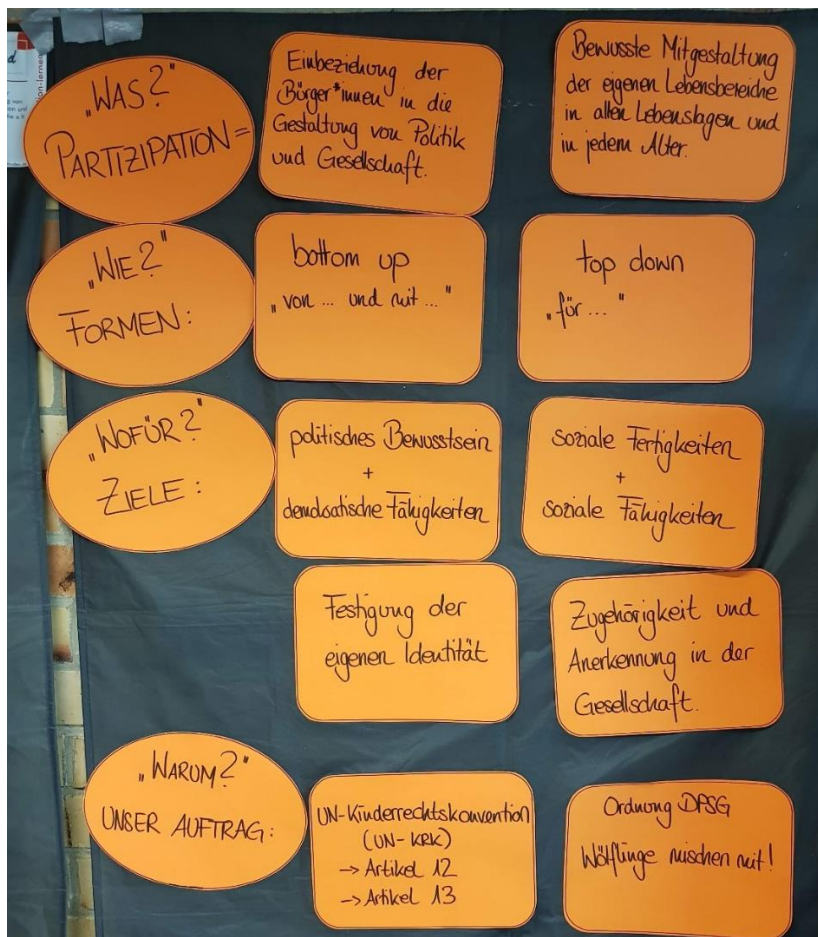 „WAS?"
PARTIZIPATION =
Einbeziehung der
Bürger*innen in die
Gestaltung von Politik
und Gesellschaft.
Bewusste Mitgestaltung
der eigenen Lebensbereiche
in allen Lebenslagen und
in jedem Alter.
„WIE?"
FORMEN:
bottom up
„von ... und mit ..."
top down
„für ..."
„WOFÜR?"
ZIELE:
politisches Bewusstsein
+
demokratische Fähigkeiten
soziale Fertigkeiten
+
soziale Fähigkeiten
Festigung der
eigenen Identität
Zugehörigkeit und
Anerkennung in der
Gesellschaft.
„WARUM?"
UNSER AUFTRAG:
UN-Kinderrechtskonvention
(UN-KRK)
→ Artikel 12
→ Artikel 13
Ordnung DPSG
Wölflinge mischen mit!